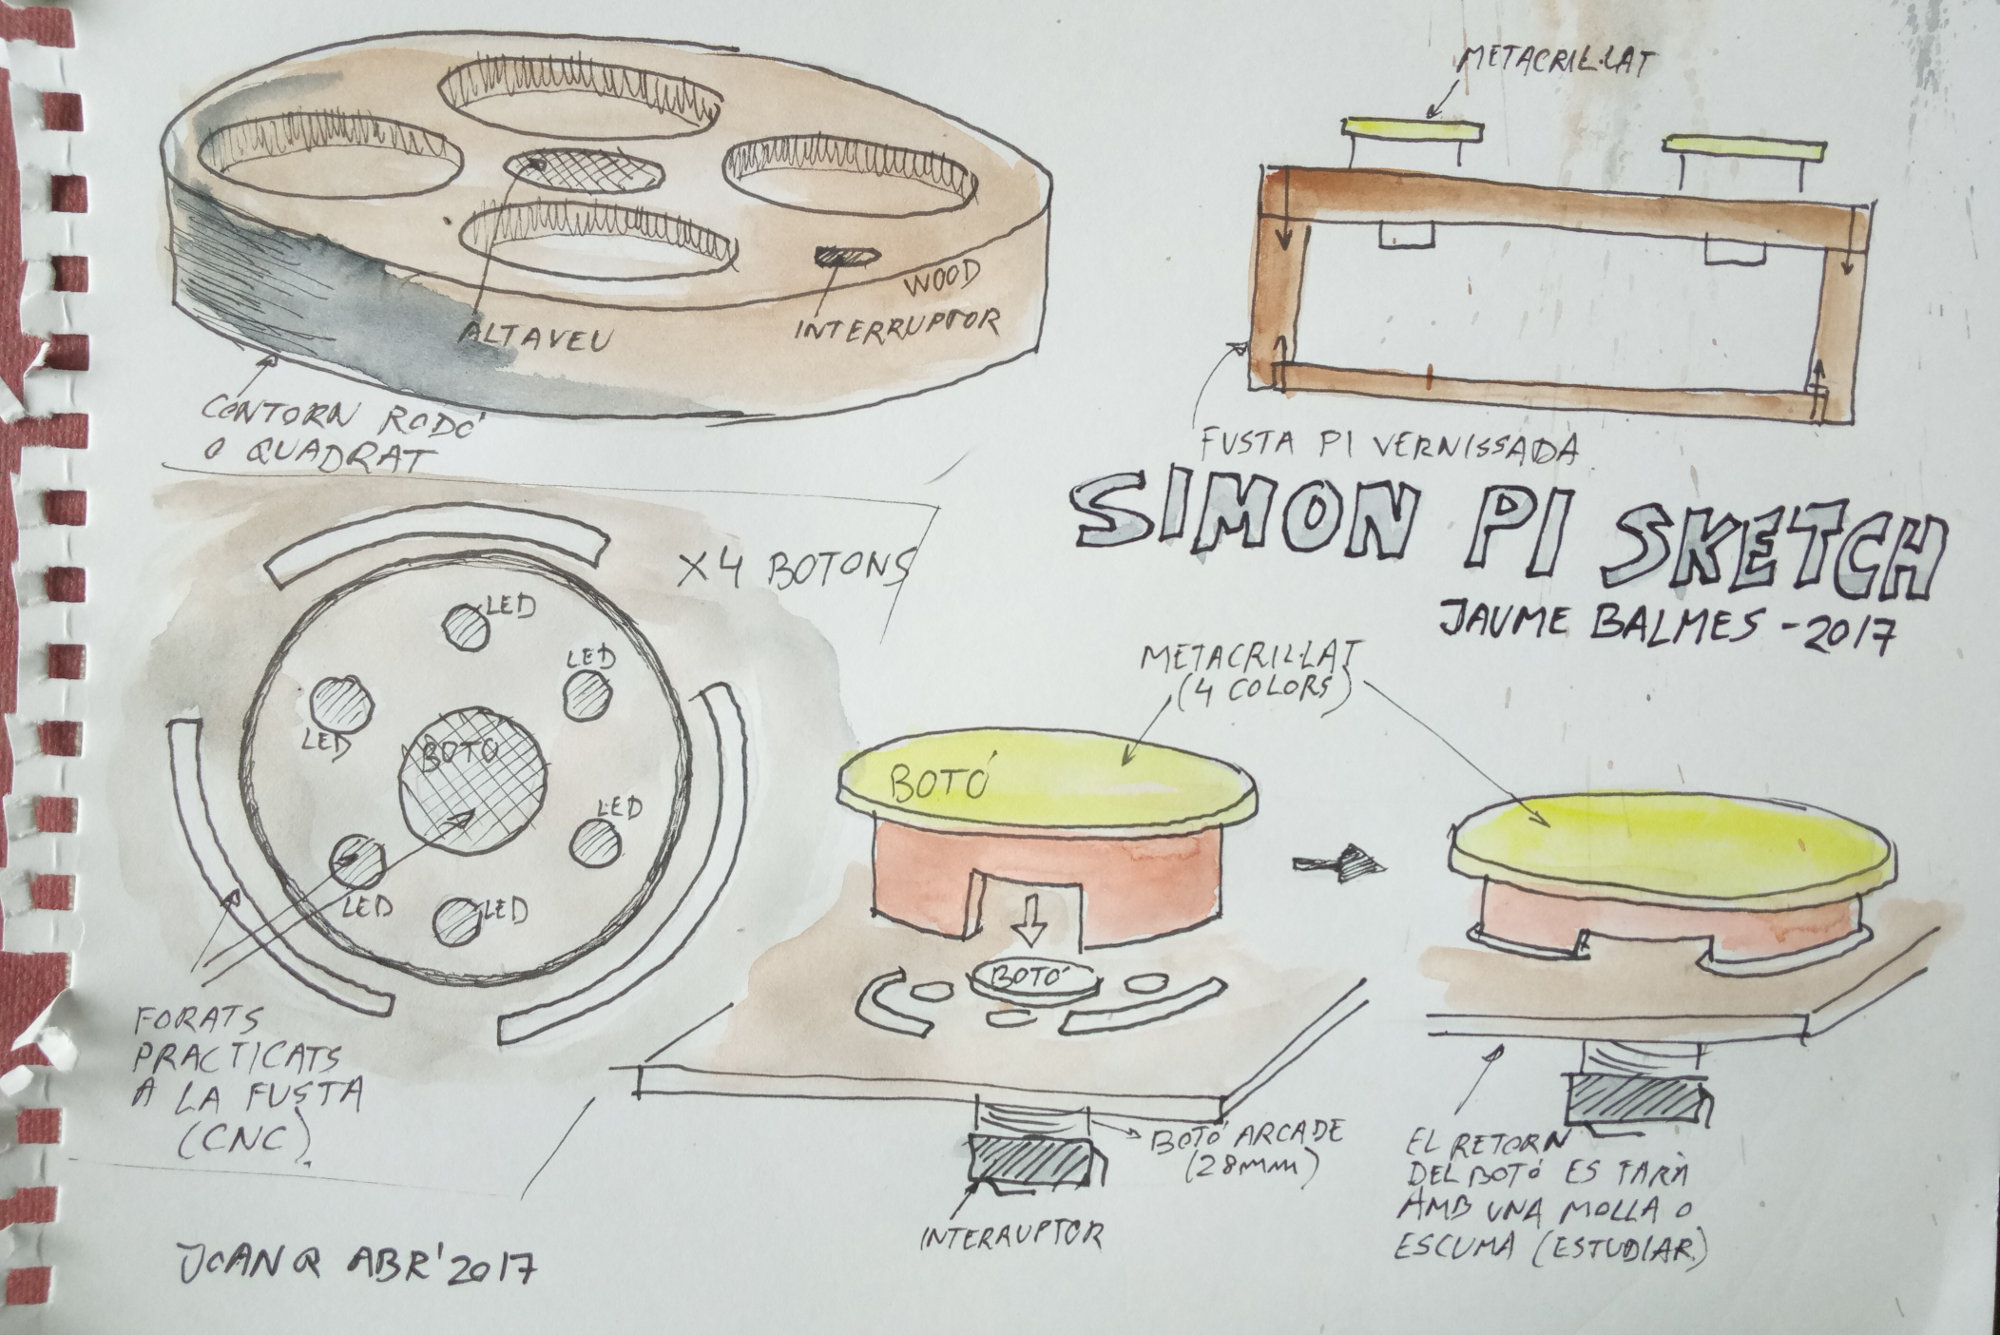 METACRIL·LAT
WOOD
ALTAVEU
INTERRUPTOR
CONTORN RODÓ
O QUADRAT
FUSTA PI VERNISSADA
SIMON PI SKETCH
JAUME BALMES - 2017
X4 BOTONS
LED
LED
LED
BOTO
LED
LED
LED
FORATS
PRACTICATS
A LA FUSTA
(CNC).
METACRIL·LAT
(4 COLORS)
BOTÓ
BOTÓ
BOTÓ ARCADE
(28mm)
INTERRUPTOR
EL RETORN
DEL BOTÓ ES FARÀ
AMB UNA MOLLA O
ESCUMA (ESTUDIAR)
JOANQ ABR'2017